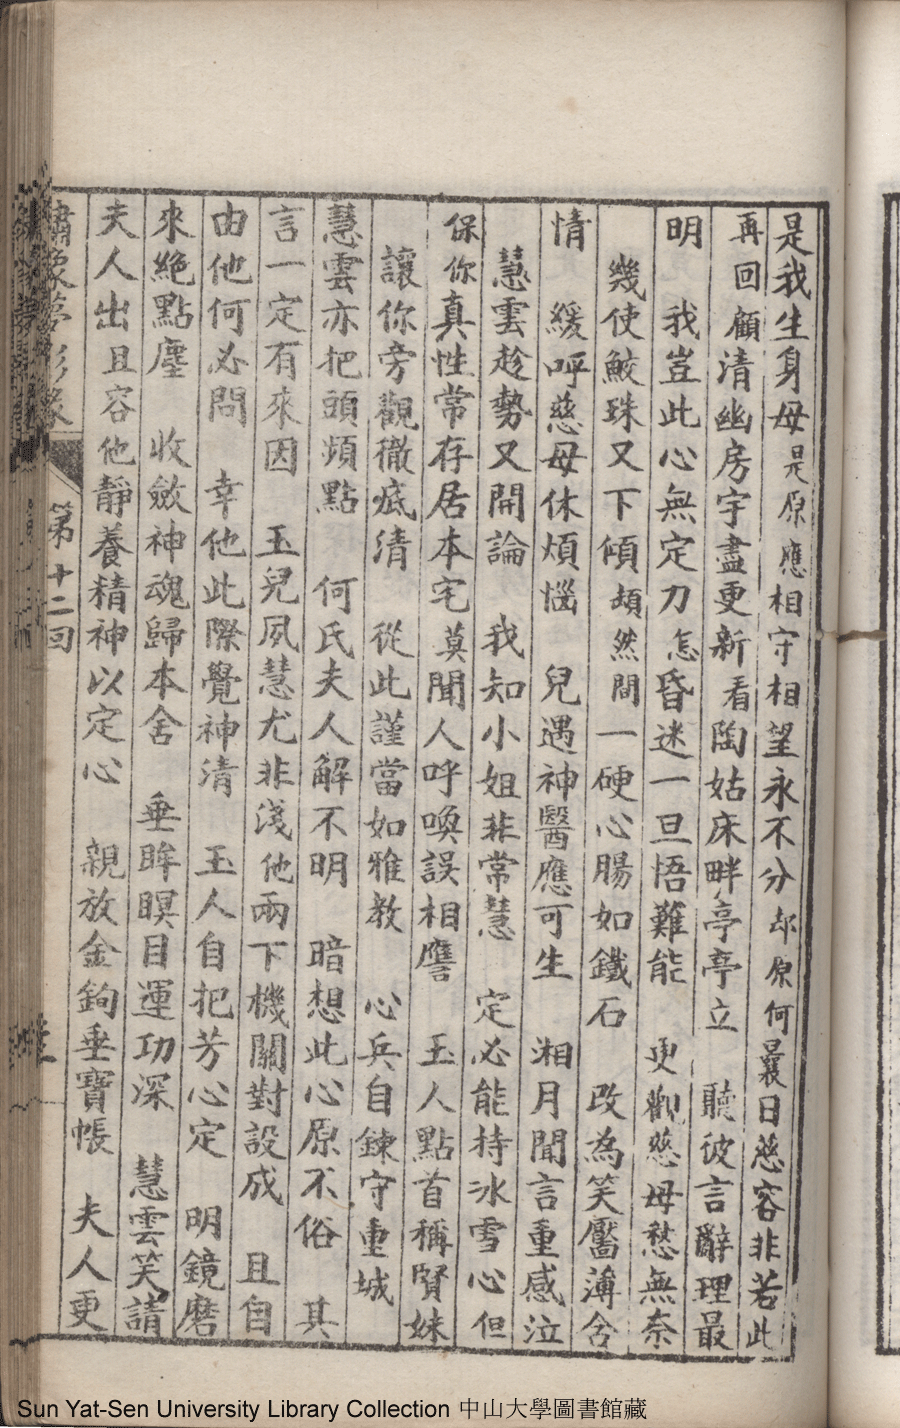 是我生身母是原應相守相望永不分却原何曩日慈容非若此
再回顧清幽房宇盡更新看陶姑床畔亭亭立 聽彼言辭理最
明 我豈此心無定刀怎昏迷一旦悟難能 更觀慈母愁無奈
幾使鮫珠又下傾頡然間一硬心腸如鐵石 改為笑靨薄含
情 緩呼慈母休煩惱 兒遇神醫應可生 湘月聞言重感泣
慧雲趁勢又開論 我知小姐非常慧 定必能持冰雪心但
保你真性常存居本宅莫聞人呼喚誤相譍 玉人點首稱賢妹
讓你旁觀徹底清 從此謹當如雅教 心兵自鍊守重城
慧雲亦把頭頻點 何氏夫人解不明 暗想此心原不俗 其
言一定有來因 玉兒夙慧尤非淺他兩下機關對設成 且自
由他何必問 幸他此際覺神清 玉人自把芳心定 明鏡磨
來絕點塵 收斂神魂歸本舍 垂眸瞑目運功深 慧雲笑請
夫人出且容他靜養精神以定心 親放金鉤垂寶帳 夫人更
繡像夢影緣 第十二回
Sun Yat-Sen University Library Collection 中山大學圖書館藏